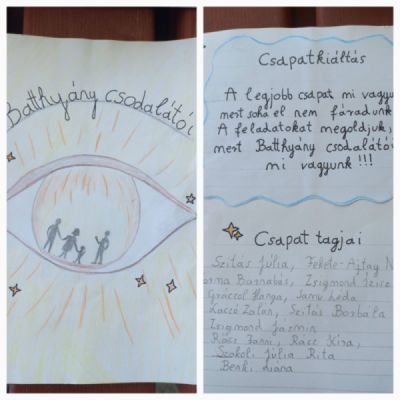 Batthyány csodalátói
Csapatkiáltás
A legjobb csapat mi vagyu
mert soha el nem fáradunk
A feladatokat megoldjuk,
mert Batthyány csodalátói
mi vagyunk!!!
Csapat tagjai
Szitás Júlia, Fekete-Ajtay N
Barnabás, Zsigmond
Hanga, Jamu Léda
Kaccó Zalán, Szitás Borbála
Zsigmond Jázmin
Rácz Fanni, Rácz Kira,
Szokoli Júlia Rita
Benki Diána